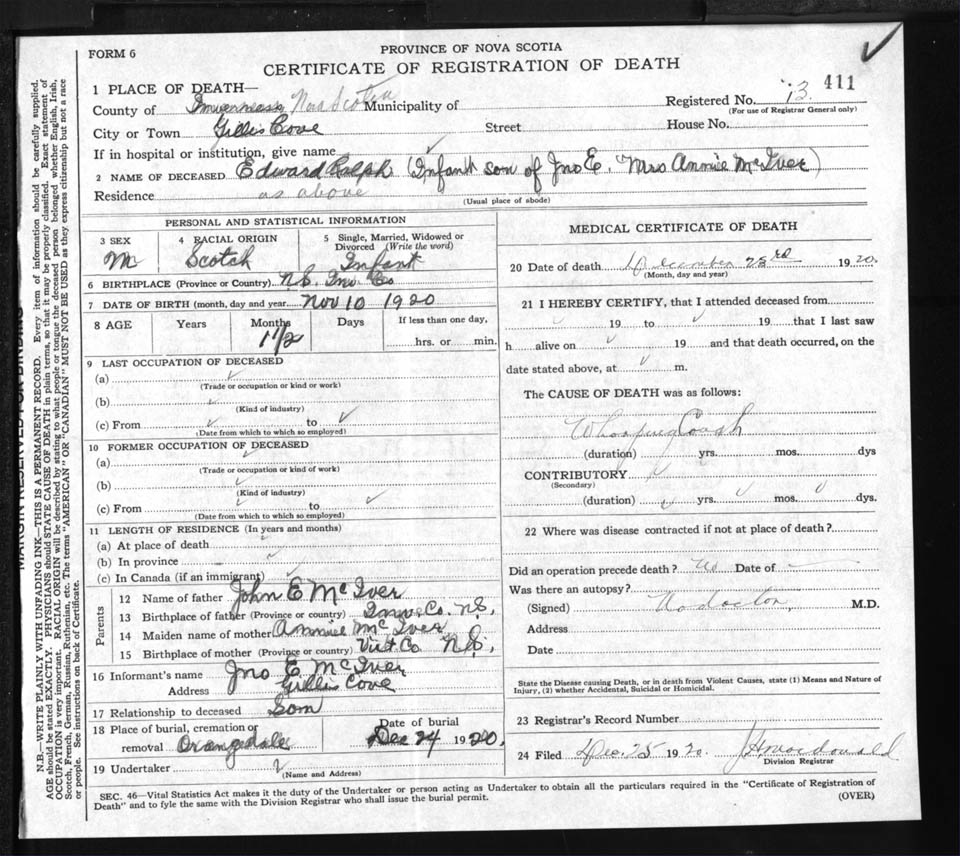 FORM 6
PROVINCE OF NOVA SCOTIA
CERTIFICATE OF REGISTRATION OF DEATH
411
1 PLACE OF DEATH—
County of Inverness Nova Scotia Municipality of
Registered No. 13
(For use of Registrar General only)
City or Town Gillis Cove Street House No.
If in hospital or institution, give name
2 NAME OF DECEASED Edward Ralph (Infant son of Jno E. Mrs Annie McIver)
Residence as above
(Usual place of abode)
PERSONAL AND STATISTICAL INFORMATION
3 SEX
M
4 RACIAL ORIGIN
Scotch
5 Single, Married, Widowed or Divorced (Write the word)
Infant
6 BIRTHPLACE (Province or Country) N.S. Inv. Co
7 DATE OF BIRTH (month, day and year) Nov 10 1920
8 AGE Years Months Days If less than one day,
1 1/2
hrs. or min.
9 LAST OCCUPATION OF DECEASED
(a)
(Trade or occupation or kind or work)
(b)
(Kind of industry)
(c) From to
(Date from which to which so employed)
10 FORMER OCCUPATION OF DECEASED
(a)
(Trade or occupation or kind of work)
(b)
(Kind of industry)
(c) From to
(Date from which to which so employed)
11 LENGTH OF RESIDENCE (In years and months)
(a) At place of death
(b) In province
(c) In Canada (if an immigrant)
Parents
12 Name of father John E McIver
13 Birthplace of father (Province or country) Inv. Co. N.S.
14 Maiden name of mother Annie McIver
15 Birthplace of mother (Province or country) Vict Co. N.S.
16 Informant's name Jno E. McIver
Address Gillis Cove
17 Relationship to deceased Son
18 Place of burial, cremation or Date of burial
removal Orangedale Dec 24 1920
19 Undertaker
(Name and Address)
MEDICAL CERTIFICATE OF DEATH
20 Date of death December 23rd 1920.
(Month, day and year)
21 I HEREBY CERTIFY, that I attended deceased from
19 to 19 that I last saw
h alive on 19 and that death occurred, on the
date stated above, at m.
The CAUSE OF DEATH was as follows:
Whooping Cough
(duration) yrs. mos. dys
CONTRIBUTORY
(Secondary)
(duration) yrs. mos. dys.
22 Where was disease contracted if not at place of death?
Did an operation precede death? No Date of
Was there an autopsy?
(Signed) No doctor M.D.
Address
Date
State the Disease causing Death, or in death from Violent Causes, state (1) Means and Nature of
Injury, (2) whether Accidental, Suicidal or Homicidal.
23 Registrar's Record Number
24 Filed Dec. 25 1920.
Division Registrar
SEC. 46—Vital Statistics Act makes it the duty of the Undertaker or person acting as Undertaker to obtain all the particulars required in the "Certificate of Registration of
Death" and to fyle the same with the Division Registrar who shall issue the burial permit.
(OVER)
MARGIN RESERVED FOR BINDING
N.B.—WRITE PLAINLY WITH UNFADING INK—THIS IS A PERMANENT RECORD. Every item of information should be carefully supplied.
AGE should be stated EXACTLY. PHYSICIANS should STATE CAUSE OF DEATH in plain terms, so that it may be properly classified. Exact statement of
OCCUPATION is very important. RACIAL ORIGIN will be described by stating to what people or tongue the deceased person belonged whether English, Irish,
Scotch, French, German, Russian, Ruthenian, etc. The terms "AMERICAN" OR "CANADIAN" MUST NOT BE USED as they express citizenship but not a race
or people. See instructions on back of Certificate.